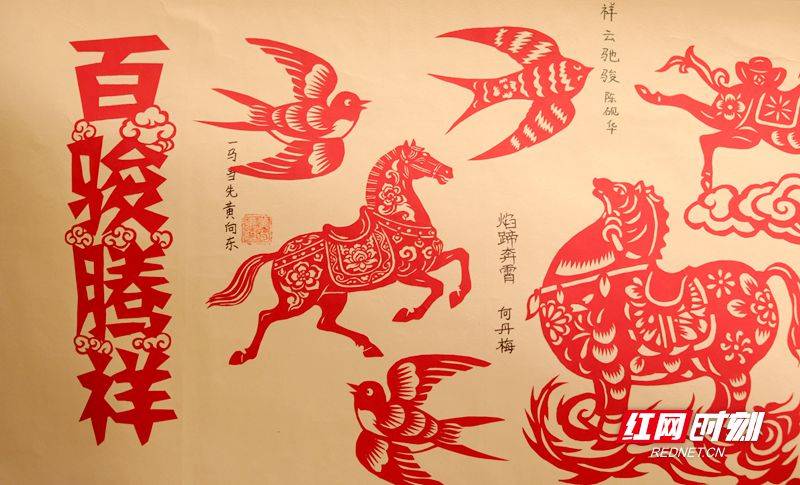 百骏腾祥
一马当先 黄向东
焰蹄奔霄 何丹梅
祥云驰骏 陈砚华
红网时刻
REDNET.CN